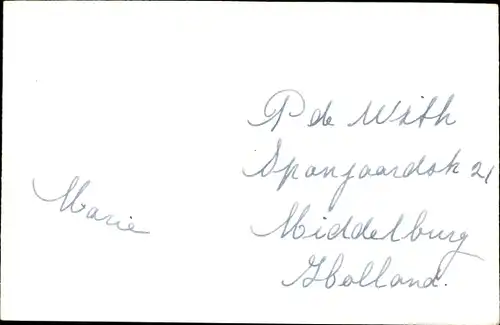 Marie
P de With
Spanjaardstr 21
Middelburg
Holland.